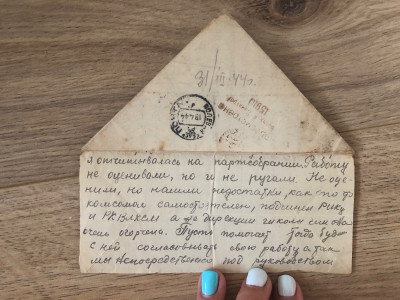 31/III 44г.
я отчитывалась на партсобрании. Работу
не оценивали, но и не ругали. Не оце-
нили, но нашли недостатки, как то
комсомол самостоятелен, подчинен РИКу
и РК ВЛКСМ а же дирекции школы
очень огорчена. Пусть помогает тогда буду
с ней согласовывать свою работу а так
мы непосредственно под руководством